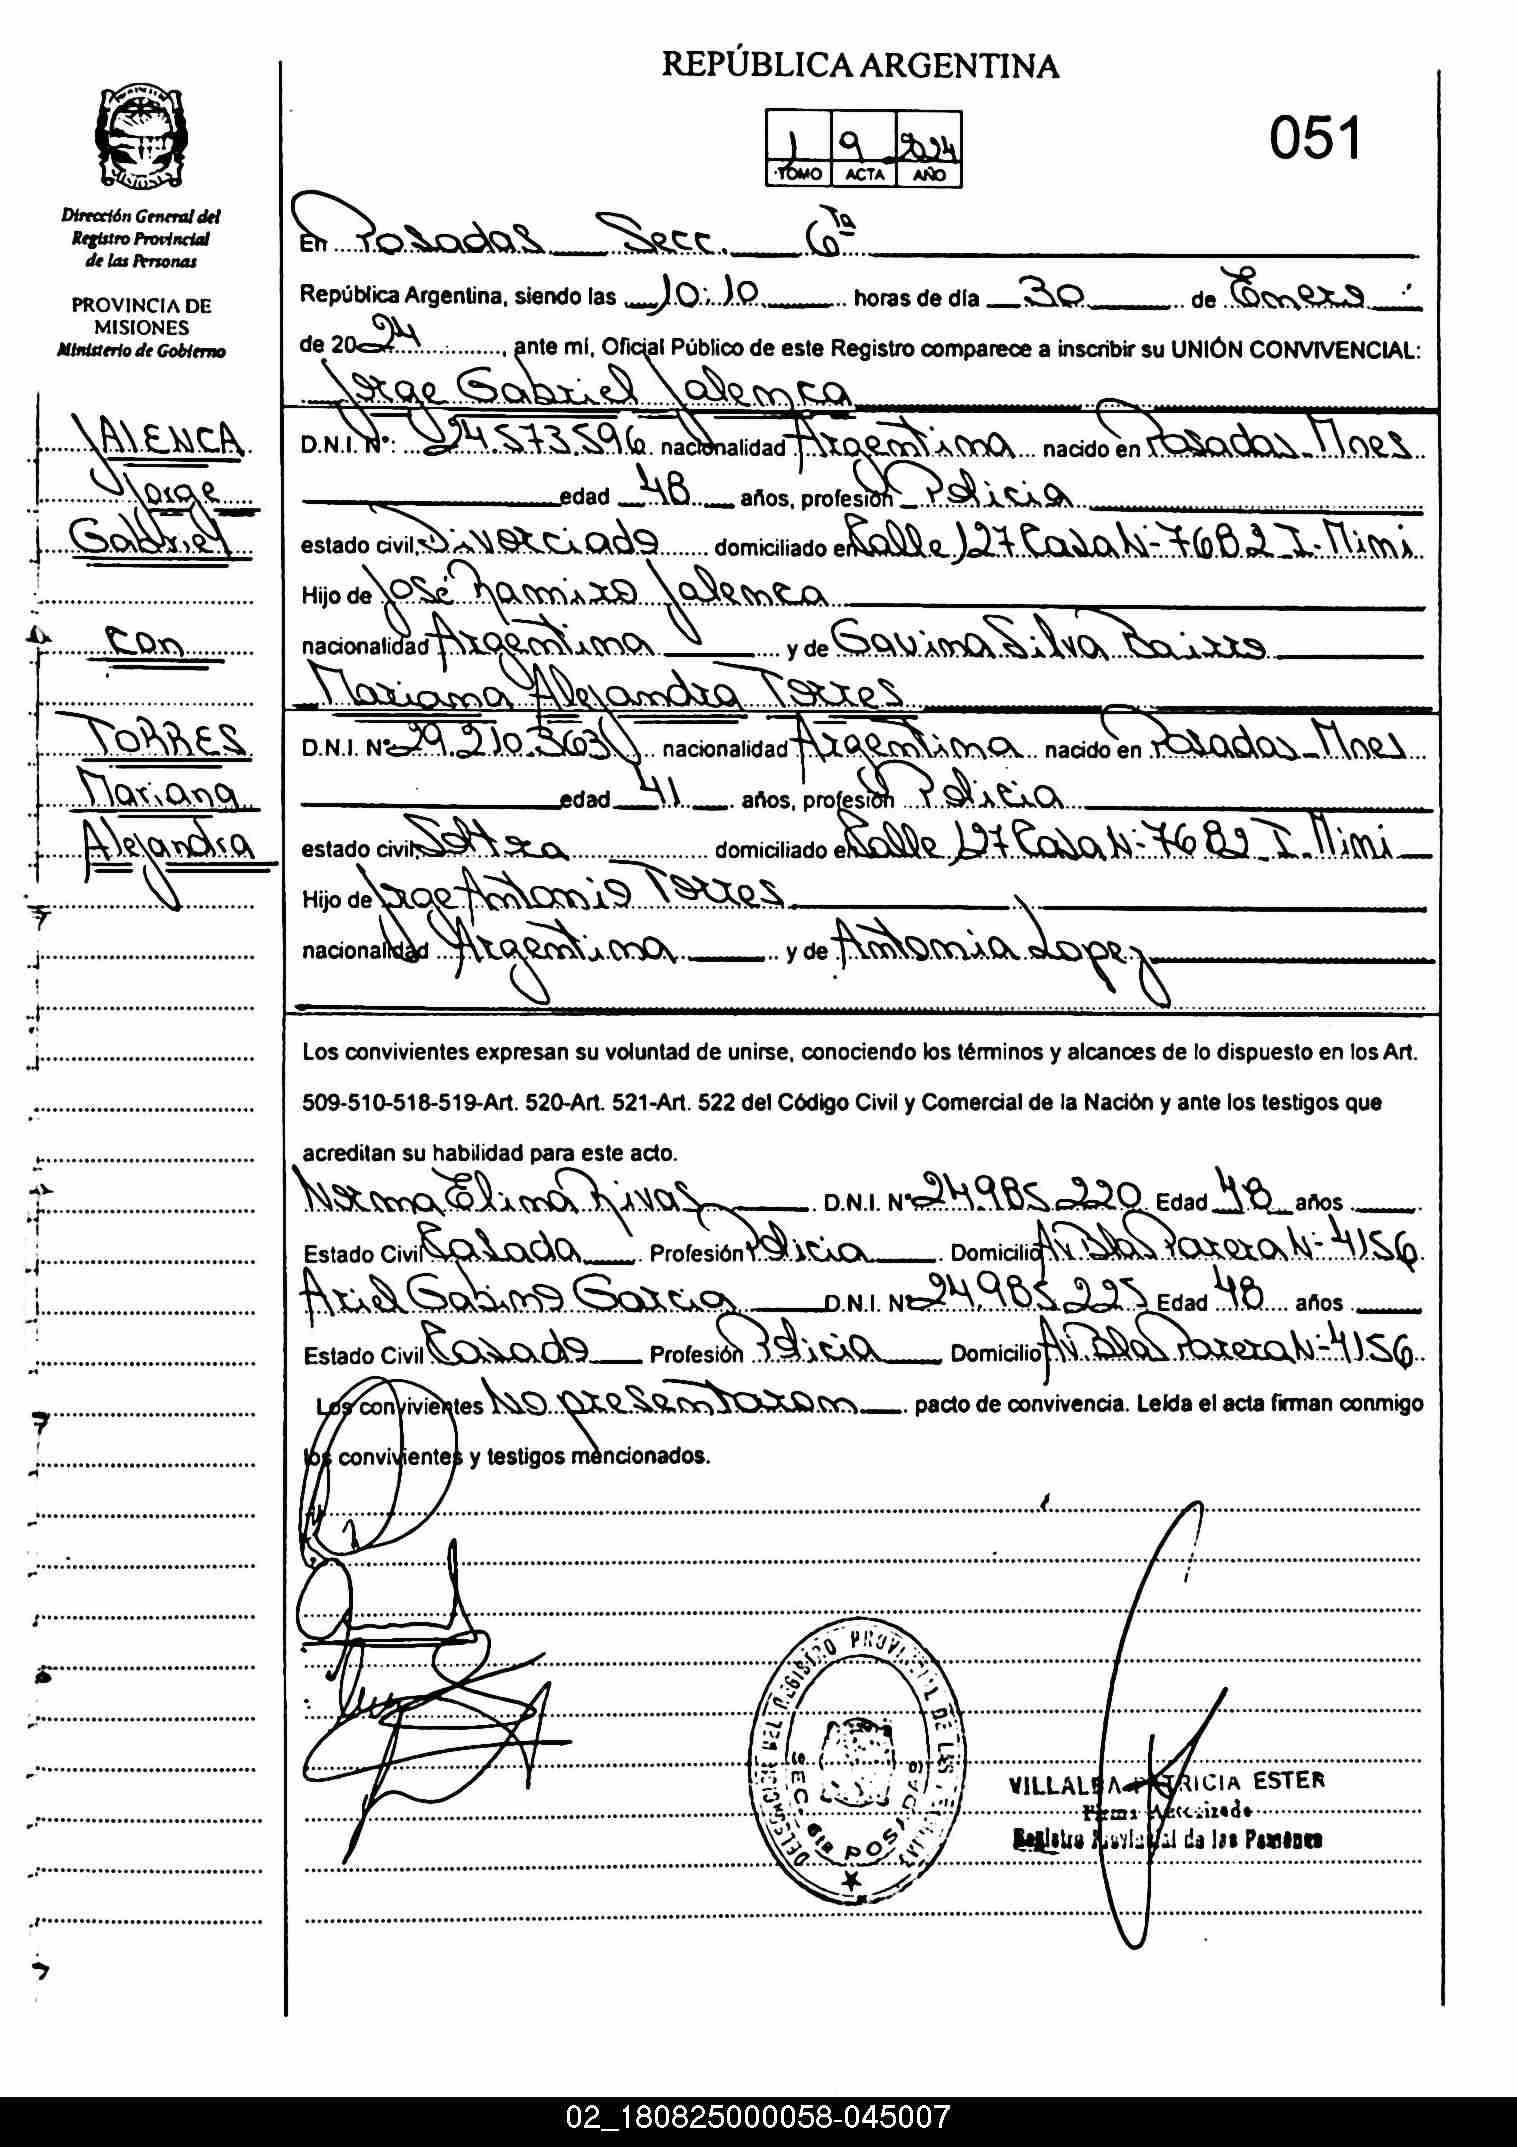 REPÚBLICA ARGENTINA
051
1 9 2024
TOMO ACTA AÑO
MISIONES
Dirección General del
Registro Provincial
de las Personas
PROVINCIA DE
MISIONES
Ministerio de Gobierno
En Posadas Secc. 6ta
República Argentina, siendo las 10:10 horas de día 30 de Enero
de 2024, ante mí, Oficial Público de este Registro comparece a inscribir su UNIÓN CONVIVENCIAL:
Jorge Gabriel Jalenca
D.N.I. N°: 24.573.596 nacionalidad Argentina nacido en Posadas-Mnes
edad 48 años, profesión Policia
estado civil Divorciado domiciliado en Calle 127 Casa N-7682 I. Mini
Hijo de José Ramiro Jalenca
nacionalidad Argentina y de Gavina Silva Bairro
Mariana Alejandra Torres
D.N.I. N° 29.210.363 nacionalidad Argentina nacido en Posadas-Mnes
edad 41 años, profesión Policia
estado civil Soltera domiciliado en Calle 127 Casa N-7682 I. Mini
Hijo de Jorge Antonio Torres
nacionalidad Argentina y de Antonia Lopez
JALENCA
Jorge
Gabriel
con
TORRES
Mariana
Alejandra
Los convivientes expresan su voluntad de unirse, conociendo los términos y alcances de lo dispuesto en los Art.
509-510-518-519-Art. 520-Art. 521-Art. 522 del Código Civil y Comercial de la Nación y ante los testigos que
acreditan su habilidad para este acto.
Norma Elina Rivas D.N.I. N° 24.985.220 Edad 48 años
Estado Civil Casada Profesión Policia Domicilio Av. Blas Parera N-4156
Ariel Gabino Garcia D.N.I. N° 24.985.225 Edad 48 años
Estado Civil Casado Profesión Policia Domicilio Av. Blas Parera N-4156
Los convivientes No presentaron pacto de convivencia. Leída el acta firman conmigo
los convivientes y testigos mencionados.
DELEGACION DEL REGISTRO PROVINCIAL DE LAS PERSONAS
SEC. 6ta POSADAS
VILLALBA PATRICIA ESTER
Firma Autorizada
Registro Provincial de las Personas
02_180825000058-045007